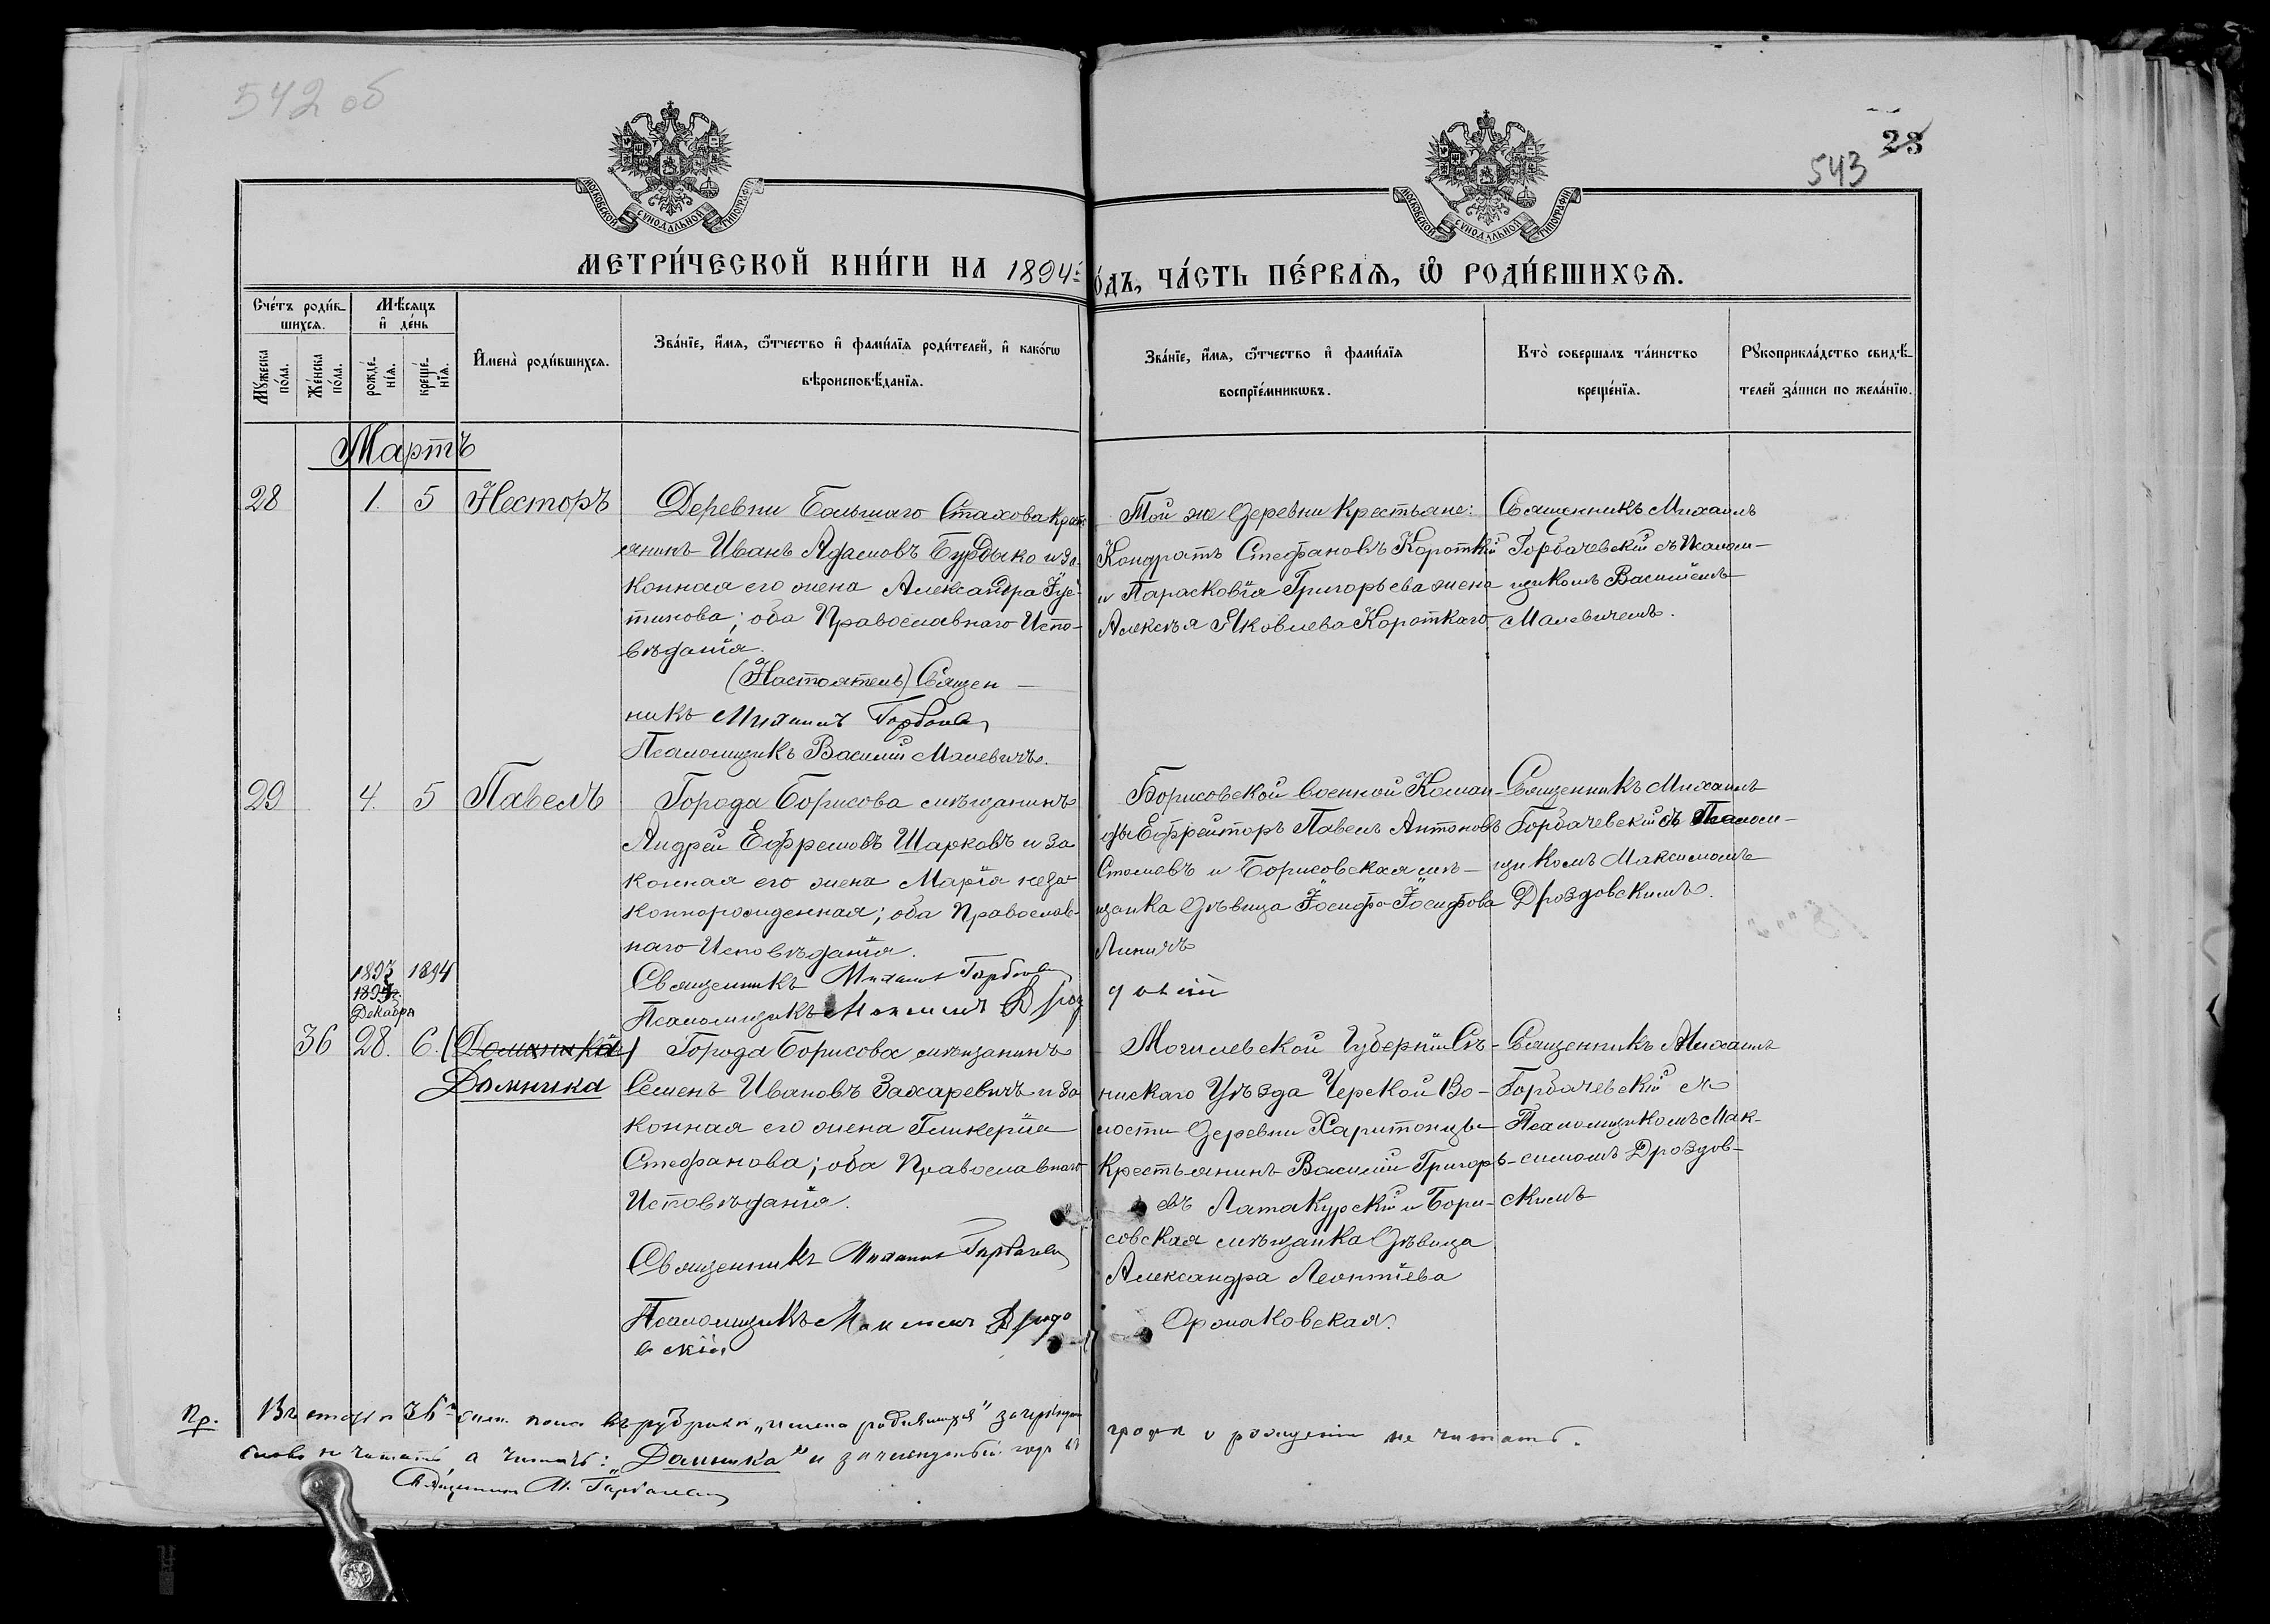 542 об
28
543
МОСКОВСКОЙ СУНОДАЛЬНОЙ ТИПОГРАФІИ
МОСКОВСКОЙ СУНОДАЛЬНОЙ ТИПОГРАФІИ
МЕТРИ́ЧЕСКОЙ КНИ́ГИ НА 1894
О́ДЪ, ЧА́СТЬ ПЕ́РВАѦ, Ѡ҆ РОДИ́ВШИХСѦ.
Сче́тъ роди́в-
шихсѧ.
Мꙋ́жеска
по́ла.
Же́нска
по́ла.
Мѣ́сѧцъ
и҆ де́нь
рожде́-
нїѧ.
креще́-
нїѧ.
И҆мена̀ роди́вшихсѧ.
Зва́нїе, и҆́мѧ, ѻ҆́тчество и҆ фами́лїѧ роди́телей, и҆ како́гѡ
вѣроисповѣ́данїѧ.
Зва́нїе, и҆́мѧ, ѻ҆́тчество и҆ фами́лїѧ
воспрїе́мникѡвъ.
Кто̀ соверша́лъ та́инство
креще́нїѧ.
Рꙋкоприкла́дство свидѣ́-
телей за́писи по жела́нїю.
Мартъ
28 1. 5 Несторъ
Деревни Большаго Стахова Крестъ
янинъ Иванъ Адамовъ Бурдыко и за-
конная его жена Александра Іус-
тинова; оба Православнаго Испо-
вѣданія.
(Настоятель) Священ-
никъ Михаилъ Горбачев
Псаломщикъ Василій Малевичъ.
Той же деревни Крестьяне:
Кондратъ Стефановъ Короткій
и Парасковія Григорьева жена
Алексѣя Яковлева Короткаго
Священникъ Михаилъ
Горбачевскій съ Псалом-
щикомъ Василіемъ
Малевичемъ.
29 4. 5 Павелъ
Города Борисова мѣщанинъ
Андрей Ефремовъ Шарковъ и за
конная его жена Марія неза-
коннорожденная; оба Православ-
наго Исповѣданія.
Священникъ Михаилъ Горбачев
Псаломщикъ Максимъ Дроз
Борисовской Военной Коман-
ды Ефрейторъ Павелъ Антоновъ
и Борисовская мѣ-
щанка дѣвица Іосифа Іосифова
Линичъ
довскій
Священникъ Михаилъ
Горбачевскій съ Псалом-
щикомъ Максимомъ
Дроздовскимъ.
1893 1894
1894г.
Декабря
36 28. 6. (Доминикія)
Домника
Города Борисова мѣщанинъ
Семенъ Ивановъ Захаревичъ и за
конная его жена Гликерія
Стефанова; оба Православнаго
Исповѣданія.
Священникъ Михаилъ Горбачев
Псаломщикъ Максимъ Дроздо
вскій
Могилевской Губерніи Сѣ-
нискаго Уѣзда Черской Во-
лости Деревни Харитонцы
Крестьянинъ Василій Григорь-
евъ Латакурскій и Бори-
совская мѣщанка дѣвица
Александра Леонтіева
Ормаковская.
Священникъ Михаилъ
Горбачевскій съ
Псаломщикомъ Мак-
симомъ Дроздов-
скимъ
Пр. Въ статьѣ 36й жен. пола въ рубрикѣ „имена родившихся" зачеркнутое
слово не читать а читать: „Домника" и зачеркнутый годъ въ
графѣ о рожденіи не читать.
Священникъ М. Горбачев